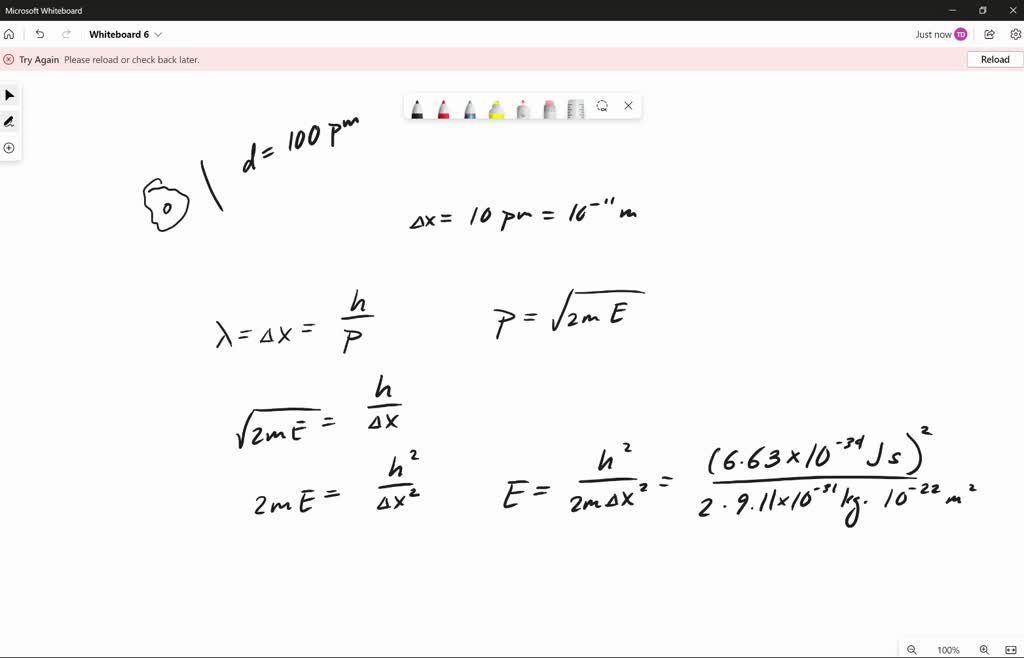 Microsoft Whiteboard
Whiteboard 6
Just now TD
Try Again Please reload or check back later.
Reload
d = 100 pm
Δx = 10 pm = 10⁻¹¹ m
λ = Δx = h/p
p = √(2mE)
√(2mE) = h/Δx
2mE = h²/Δx²
E = h²/(2mΔx²) = (6.63×10⁻³⁴ Js)²/(2·9.11×10⁻³¹ kg·10⁻²² m²)
100%